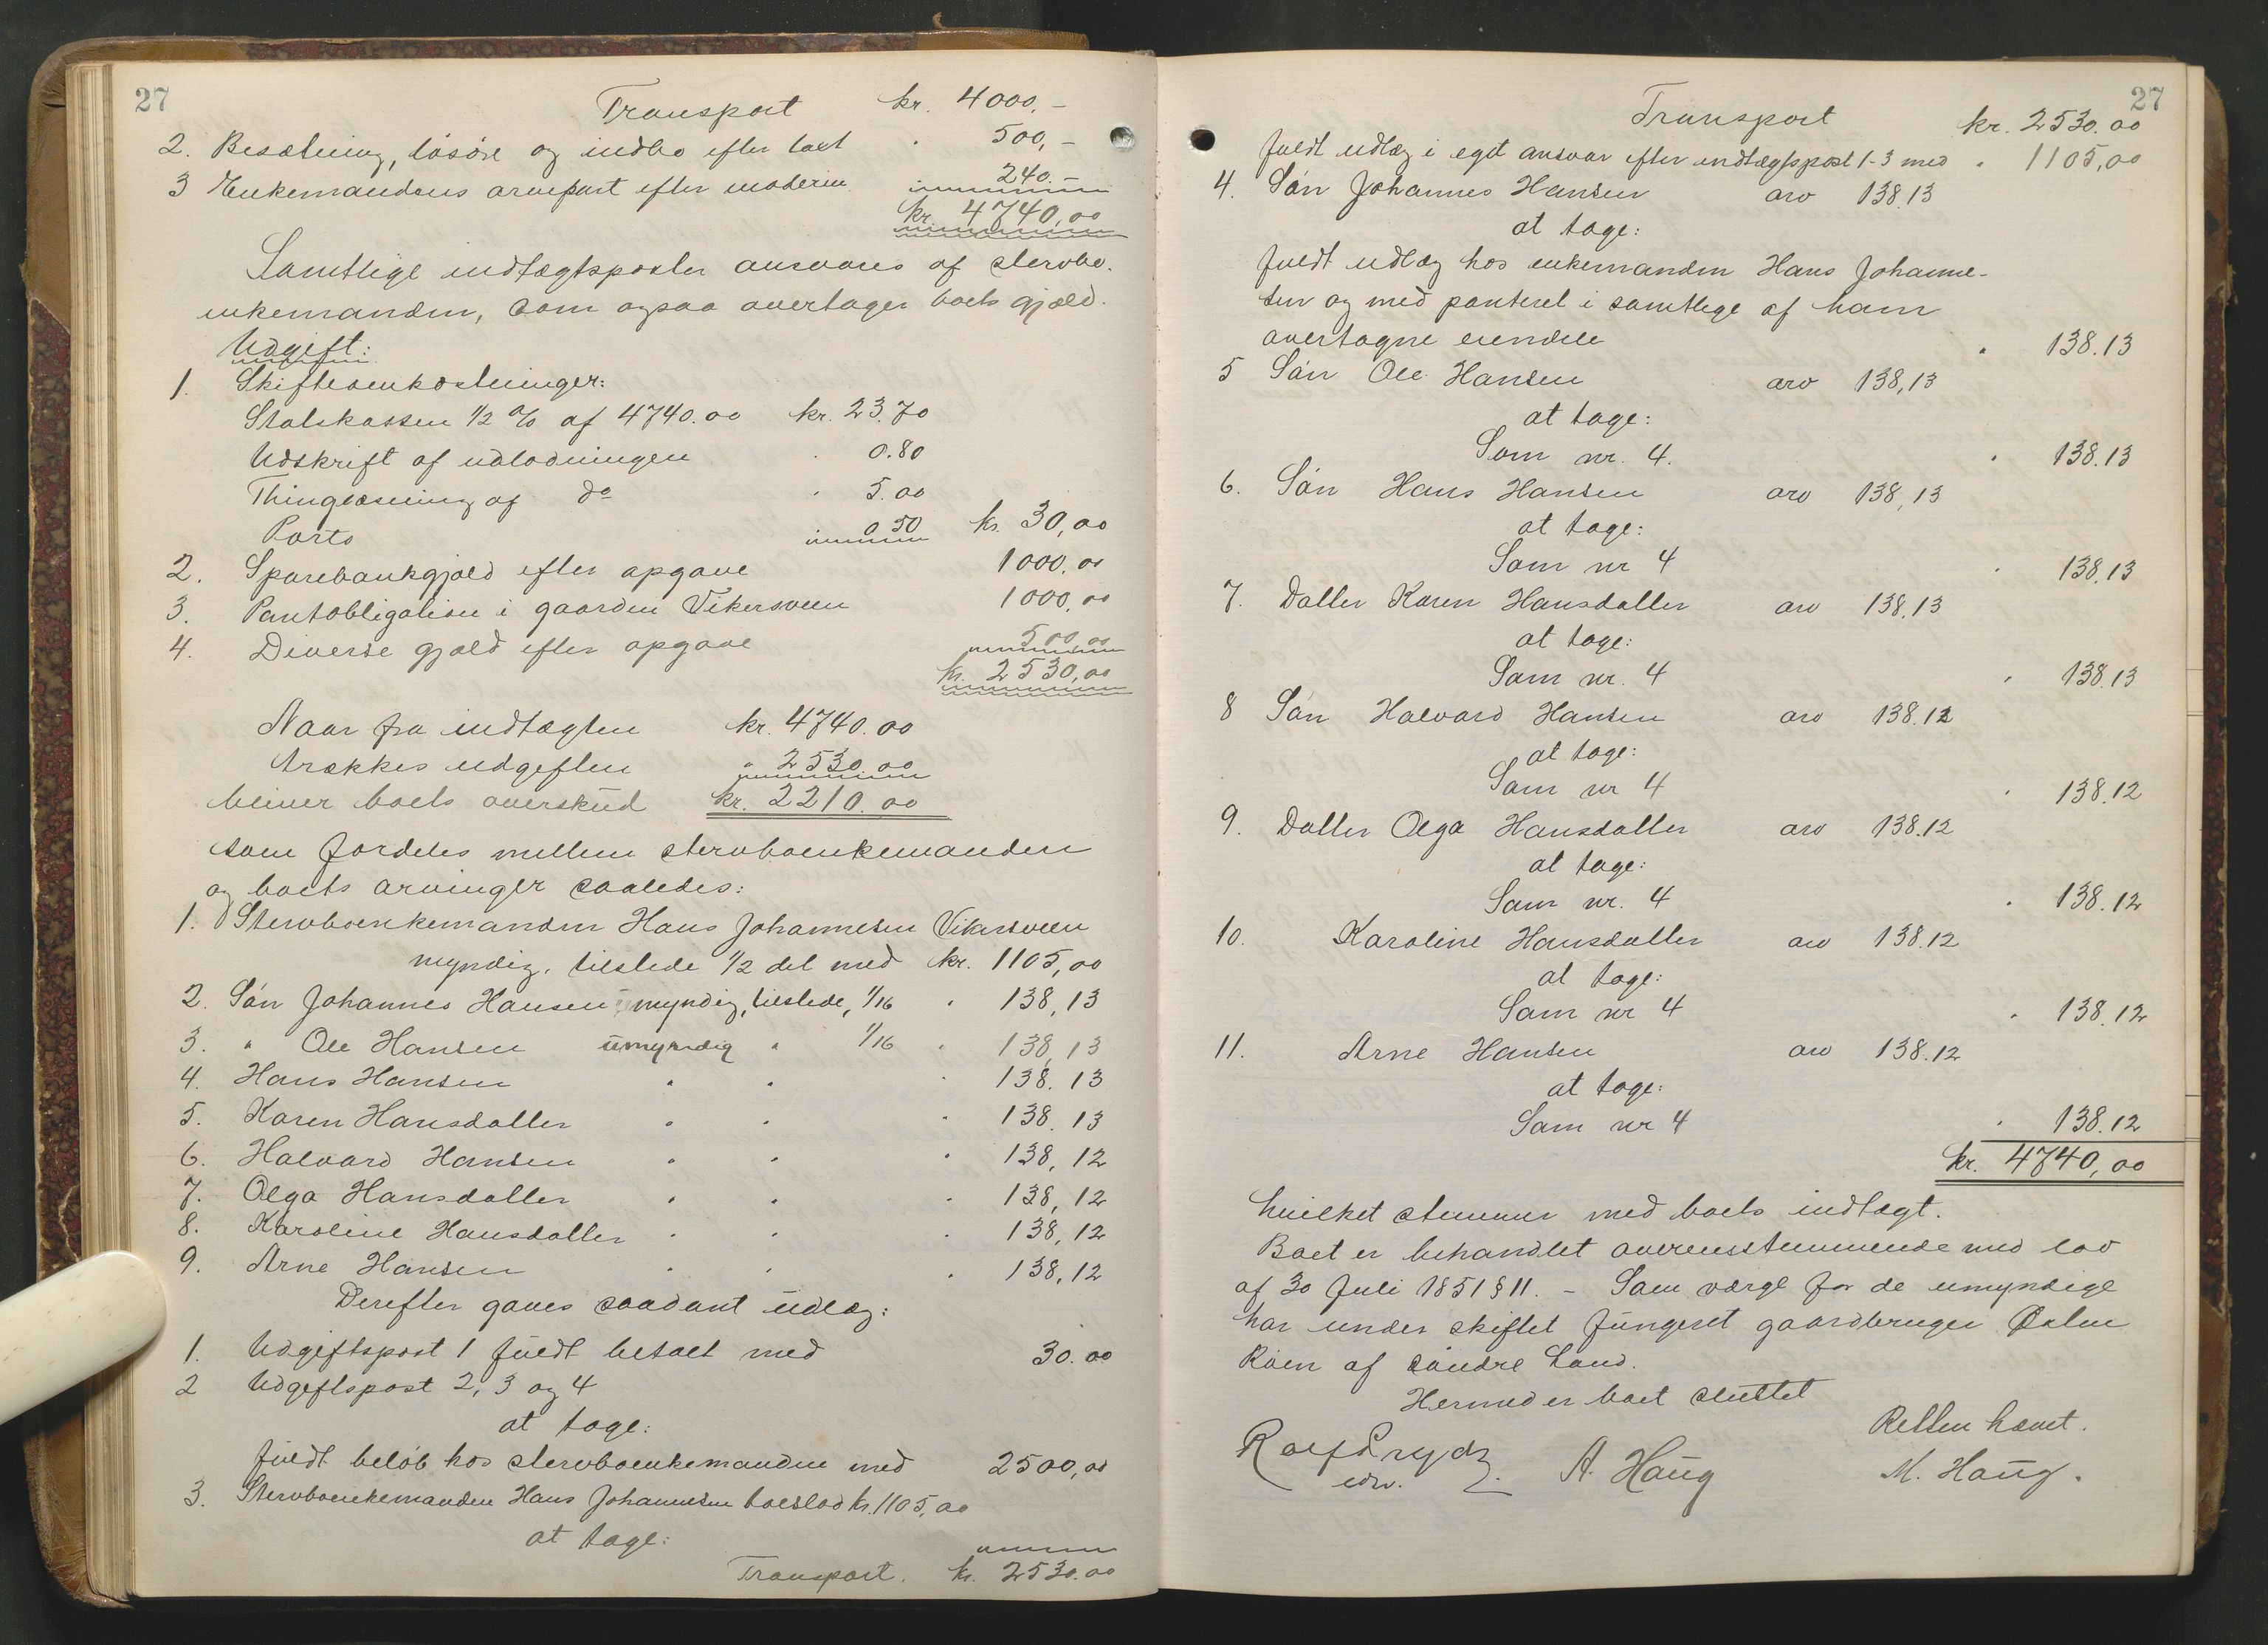 27
Transport kr. 4000,-
2. Besætning, løsøre og indbo efter taxt " 500,-
3 Enkemandens arvepart efter moderen 240.-
kr. 4740,00
Samtlige indtægtsposter ansvares af stervbo-
enkemanden, som ogsaa overtager boets gjæld.
Udgift:
1. Skifteomkostninger:
Statskassen 1/2 % af 4740.00 kr. 23.70
Udskrift af udlodningen " 0.80
Thinglæsning af do " 5.00
Porto 0.50 kr. 30,00
2. Sparebankgjæld efter opgave 1000.00
3. Pantobligation i gaarden Vikersveen 1000,00
4. Diverse gjæld efter opgave 500,00
kr. 2530,00
Naar fra indtægten kr. 4740.00
trækkes udgiften " 2530.00
bliver boets overskud kr. 2210.00
som fordeles mellem stervboenkemanden
og boets arvinger saaledes:
1. Stervboenkemanden Hans Johannesen Vikersveen
myndig, tilstede 1/2 del med kr. 1105,00
2. Søn Johannes Hansen myndig, tilstede, 1/16 " 138,13
3. " Ole Hansen umyndig " 1/16 " 138,13
4. Hans Hansen " " " 138.13
5. Karen Hansdatter " " " 138.13
6. Halvard Hansen " " " 138,12
7. Olga Hansdatter " " " 138,12
8. Karoline Hansdatter " " " 138,12
9. Arne Hansen " " " 138,12
Derefter gaves saadant udlæg:
1. Udgiftspost 1 fuldt betalt med 30.00
2 Udgiftspost 2, 3 og 4
at tage:
fuldt beløb hos stervboenkemanden med 2500,00
3. Stervboenkemanden Hans Johannesen boeslod kr. 1105,00
at tage:
Transport. kr. 2530.00
27
Transport kr. 2530.00
fuldt udlæg i eget ansvar efter indtægtspost 1-3 med " 1105,00
4. Søn Johannes Hansen arv 138.13
at tage:
fuldt udlæg hos enkemanden Hans Johanne-
sen og med panteret i samtlige af ham
overtagne eiendele " 138.13
5 Søn Ole Hansen arv 138,13
at tage:
Som nr. 4. " 138.13
6. Søn Hans Hansen arv 138,13
at tage:
Som nr 4 " 138.13
7. Datter Karen Hansdatter arv 138.13
at tage:
Som nr. 4 " 138.13
8 Søn Halvard Hansen arv 138.12
at tage:
Som nr 4 " 138.12
9. Datter Olga Hansdatter arv 138.12
at tage:
Som nr. 4 " 138.12
10. Karoline Hansdatter arv 138.12
at tage:
Som nr 4 " 138.12
11. Arne Hansen arv 138.12
at tage:
Som nr 4 " 138.12
kr. 4740,00
hvilket stemmer med boets indtægt.
Boet er behandlet overensstemmende med lov
af 30 Juli 1851 § 11. - Som værge for de umyndige
har under skiftet fungeret gaardbruger
af søndre Land.
Hermed er boet sluttet
Retten hævet.
A. Haug M. Haug.